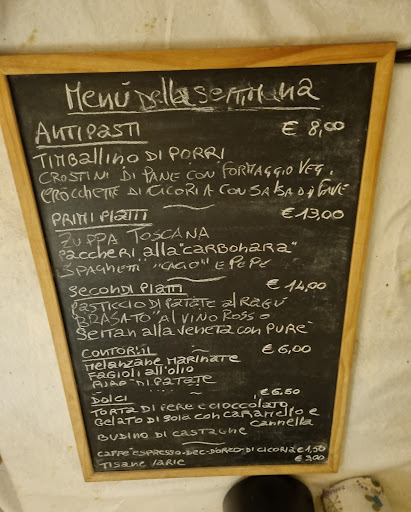 Menù della settimana
ANTIPASTI € 8,00
TIMBALLINO DI PORRI
CROSTINI DI PANE CON FORMAGGIO VEG.
CROCCHETTE DI CICORIA CON SALSA DI FAVE
PRIMI PIATTI € 13,00
ZUPPA TOSCANA
PACCHERI alla "CARBONARA"
SPAGHETTI "CACIO" E PEPE
SECONDI PIATTI € 14,00
PASTICCIO DI PATATE al RAGÙ
"BRASATO" Al VINO ROSSO
Seitan alla veneta con PURÈ
CONTORNI € 6,00
MELANZANE MARINATE
FAGIOLI all'OLIO
DI PATATE
DOLCI € 6,50
TORTA DI PERE E CIOCCOLATO
Gelato di soia con caramello e
cannella
BUDINO DI CASTAGNE
CAFFÈ ESPRESSO-DEC-D'ORZO-DI CICORIA € 1,50
TISANE VARIE € 3,00